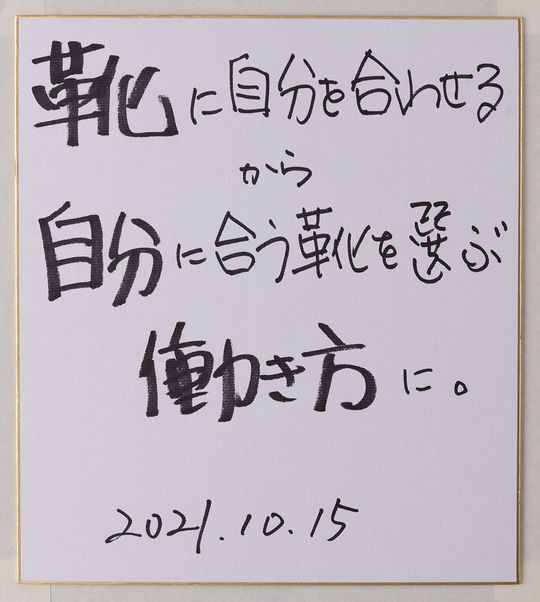 靴に自分を合わせる
から
自分に合う靴を選ぶ
働き方に。
2021.10.15